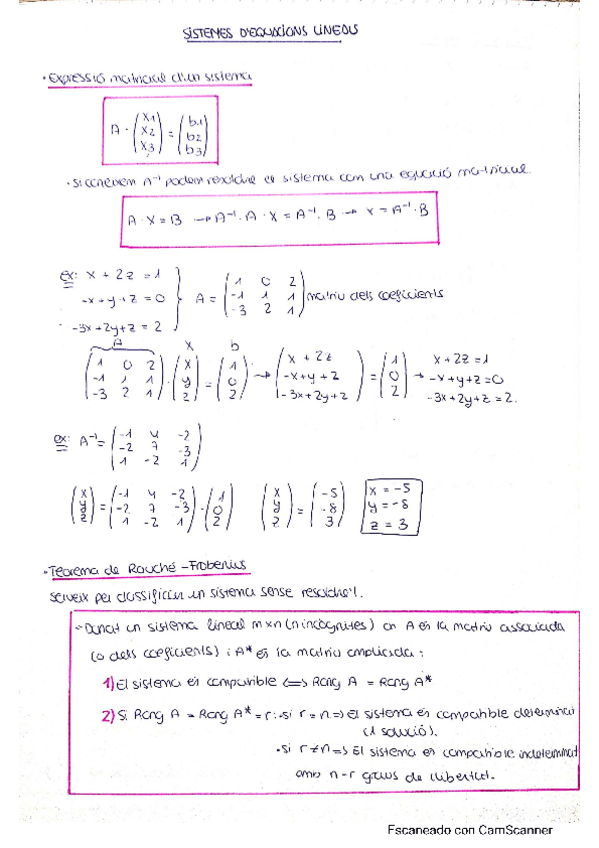 SISTEMES D'EQUACIONS LINEALS
• Expressió matricial d'un sistema
A · (x1 x2 x3) = (b1 b2 b3)
• Si coneixem A⁻¹ podem resoldre el sistema com una equació matricial.
A · X = B → A⁻¹ · A · X = A⁻¹ · B → X = A⁻¹ · B
ex: x + 2z = 1
-x + y + z = 0
-3x + 2y + z = 2
A = (1 0 2 / -1 1 1 / -3 2 1) matriu dels coeficients
A x b
(1 0 2 / -1 1 1 / -3 2 1) · (x y z) = (1 0 2) → (x + 2z / -x + y + z / -3x + 2y + z) = (1 0 2) → x + 2z = 1
-x + y + z = 0
-3x + 2y + z = 2.
ex: A⁻¹ = (-1 4 -2 / -2 7 -3 / 1 -2 1)
(x y z) = (-1 4 -2 / -2 7 -3 / 1 -2 1) · (1 0 2) (x y z) = (-5 -8 3)
x = -5
y = -8
z = 3
• Teorema de Rouché - Frobenius
Serveix per classificar un sistema sense resoldre'l.
- Donat un sistema lineal m×n (n incògnites) on A és la matriu associada
(o dels coeficients) i A* és la matriu ampliada:
1) El sistema és compatible ⟺ Rang A = Rang A*
2) Si Rang A = Rang A* = r: • si r = n => El sistema és compatible determinat
(1 solució).
• si r ≠ n => El sistema és compatible indeterminat
amb n - r graus de llibertat.
Escaneado con CamScanner